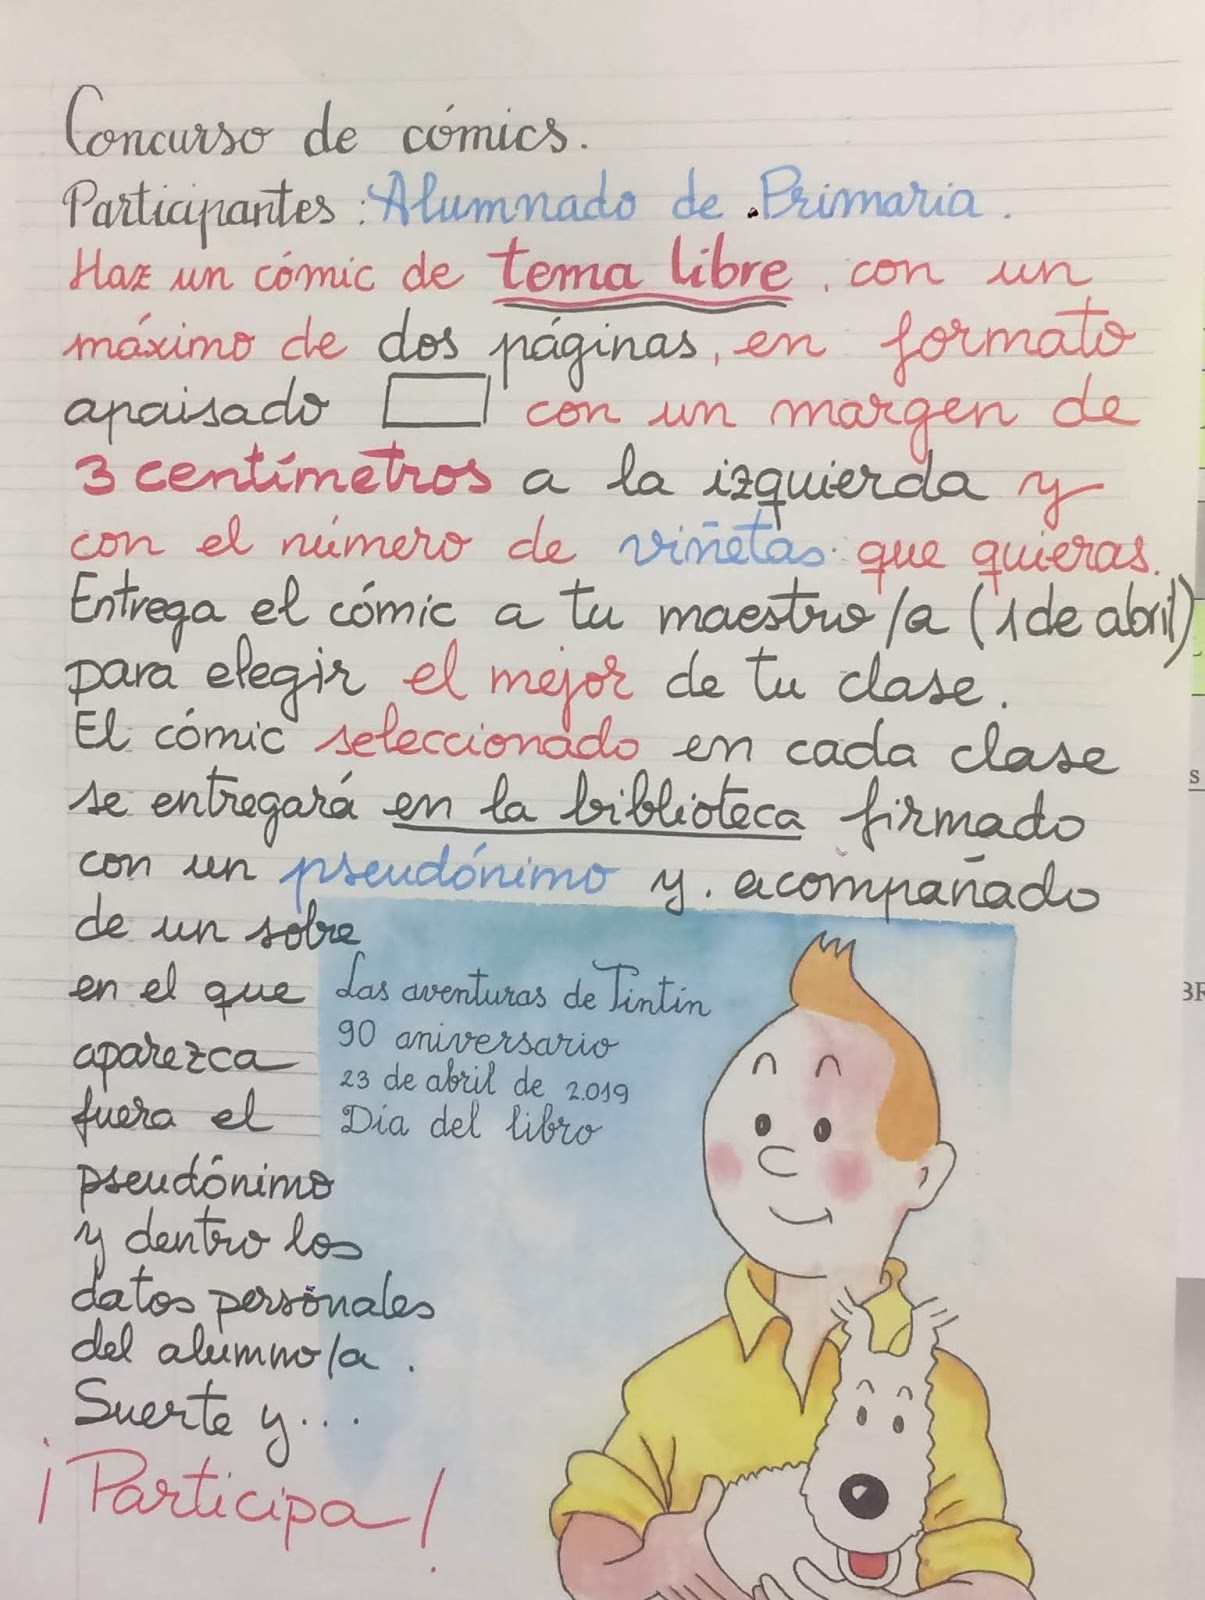 Concurso de cómics.
Participantes: Alumnado de Primaria.
Haz un cómic de tema libre, con un
máximo de dos páginas, en formato
apaisado con un margen de
3 centímetros a la izquierda y
con el número de viñetas que quieras.
Entrega el cómic a tu maestro/a (1 de abril)
para elegir el mejor de tu clase.
El cómic seleccionado en cada clase
se entregará en la biblioteca firmado
con un pseudónimo y. acompañado
de un sobre
en el que
aparezca
fuera el
pseudónimo
y dentro los
datos personales
del alumno/a.
Suerte y...
¡Participa!
Las aventuras de Tintín
90 aniversario
23 de abril de 2.019
Día del libro